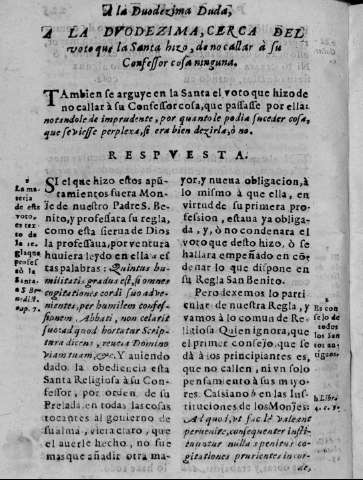 A la Duodezima Duda,
A LA DVODEZIMA, CERCA DEL
voto que la Santa hizo, de no callar à su
Confessor cosa ninguna.
TAmbien se arguye en la Santa el voto que hizo de
no callar à su Confessor cosa, que passasse por ella:
notandole de imprudente, por quanto le podia suceder cosa,
que se viesse perplexa, si era bien dezirla, ò no.
RESPVESTA.
SI el que hizo estos apú-
tamientos fuera Mon-
ge de nuestro Padre S. Be-
nito, y professara su regla,
como esta sierva de Dios
la professaua, por ventura
huuiera leydo en ella es
tas palabras: Quintus hu-
militatis gradus est, si omnes
cogitationes cordi suo adve-
nientes, per humilem confes-
sionem Abbati, non celarit
suo: ad quod hortatur Scrip-
tura dicens, reuela Domino
viam tuam, &c. Y auiendo
dado la obediencia esta
Santa Religiosa à su Con-
fessor, por orden de su
Prelada, en todas las cosas
tocantes al gouierno de
su alma, viera claro, que
el auerle hecho, no fue
mas que añadir otra ma-
La ma-
teria
de este
voto,
es tex
to de
la re-
gla que
profes-
sò la
Santa.
a S Be-
ap. 7.
yor, y nueua obligacion, à
lo mismo à que ella, en
virtud de su primera pro-
fession, estaua ya obliga-
da, y, ò no condenara el
voto que desto hizo, ò se
hallara empeñado en cõ-
denar lo que dispone en
su Regla San Benito.
Pero dexemos lo parti
cular de nuestra Regla, y
vamos à lo comun de Re-
ligiosa Quien ignora, que
el primer consejo, que se
dà à los principiantes es,
que no callen, ni vn solo
pensamiento à sus mayo-
res. Cassiano b en las Ins-
tituciones de los Monjes:
Ad quod, vt facilè valeant
peruenire, consequenter insti-
tuuntur nulla penitus co-
gitationes prurientes in cor-
de,
Es con
sejo de
todos
los San
tos an-
tiguos.
b Libr.
4. c. 9.